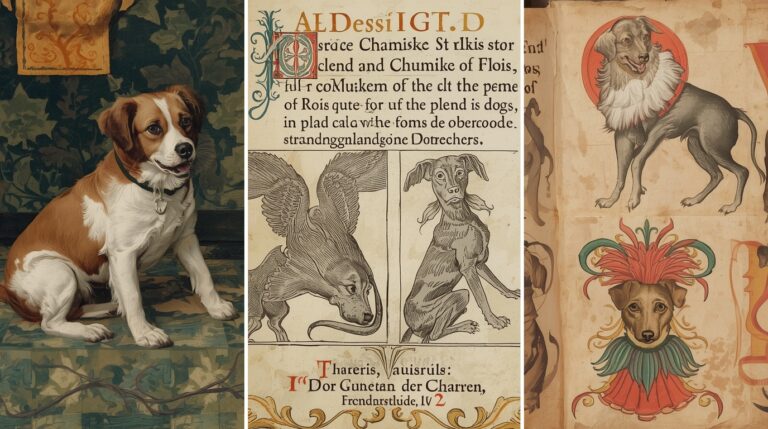 ALDessiIGT.D
srice Chamiske St rlkis stor
clend and Chumike of Flois,
full r coMuikem of the clt the peme
of Rois qute for uf the plend is dogs,
in plad cala vthe foms de obercoode.
strandnggnlandgōne Dotrechers.
Thareris, vauisruls:
I" Dor Gunetan der Charren,
Frendnrstlulde, IV 2